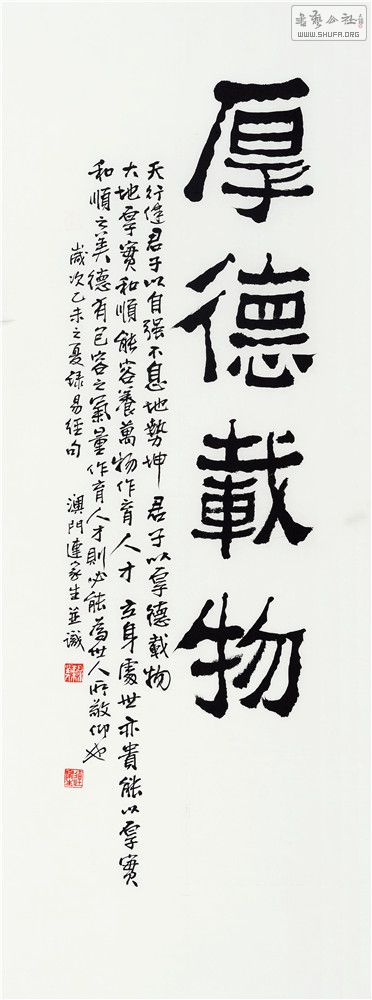 厚德載物
天行健君子以自强不息地勢坤君子以厚德載物
大地厚實和順能容養萬物作育人才立身處世亦貴能以厚實
和順之美德有包容之氣量作育人才則必能為世人所敬仰也
歲次乙未之夏錄易經句
澳門連家生並識
書藝公社
WWW.SHUFA.ORG